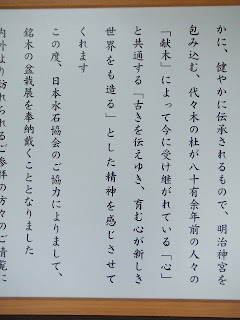 かに、健やかに伝承されるもので、明治神宮を
包み込む、代々木の杜が八十有余年前の人々の
「献木」によって今に受け継がれている「心」
と共通する「古きを伝えゆき、育む心が新しき
世界をも造る」とした精神を感じさせて
くれます
この度、日本水石協会のご協力によりまして、
銘木の盆栽展を奉納戴くこととなりました
内外より訪れられるご参拝の方々のご清覧に